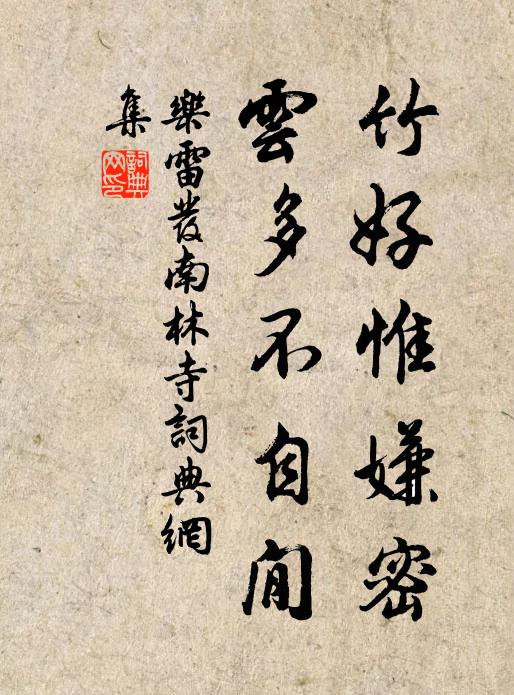 竹好惟嫌密
雲多不自閒
樂雷發南林寺詞典網
集
詞典
网印